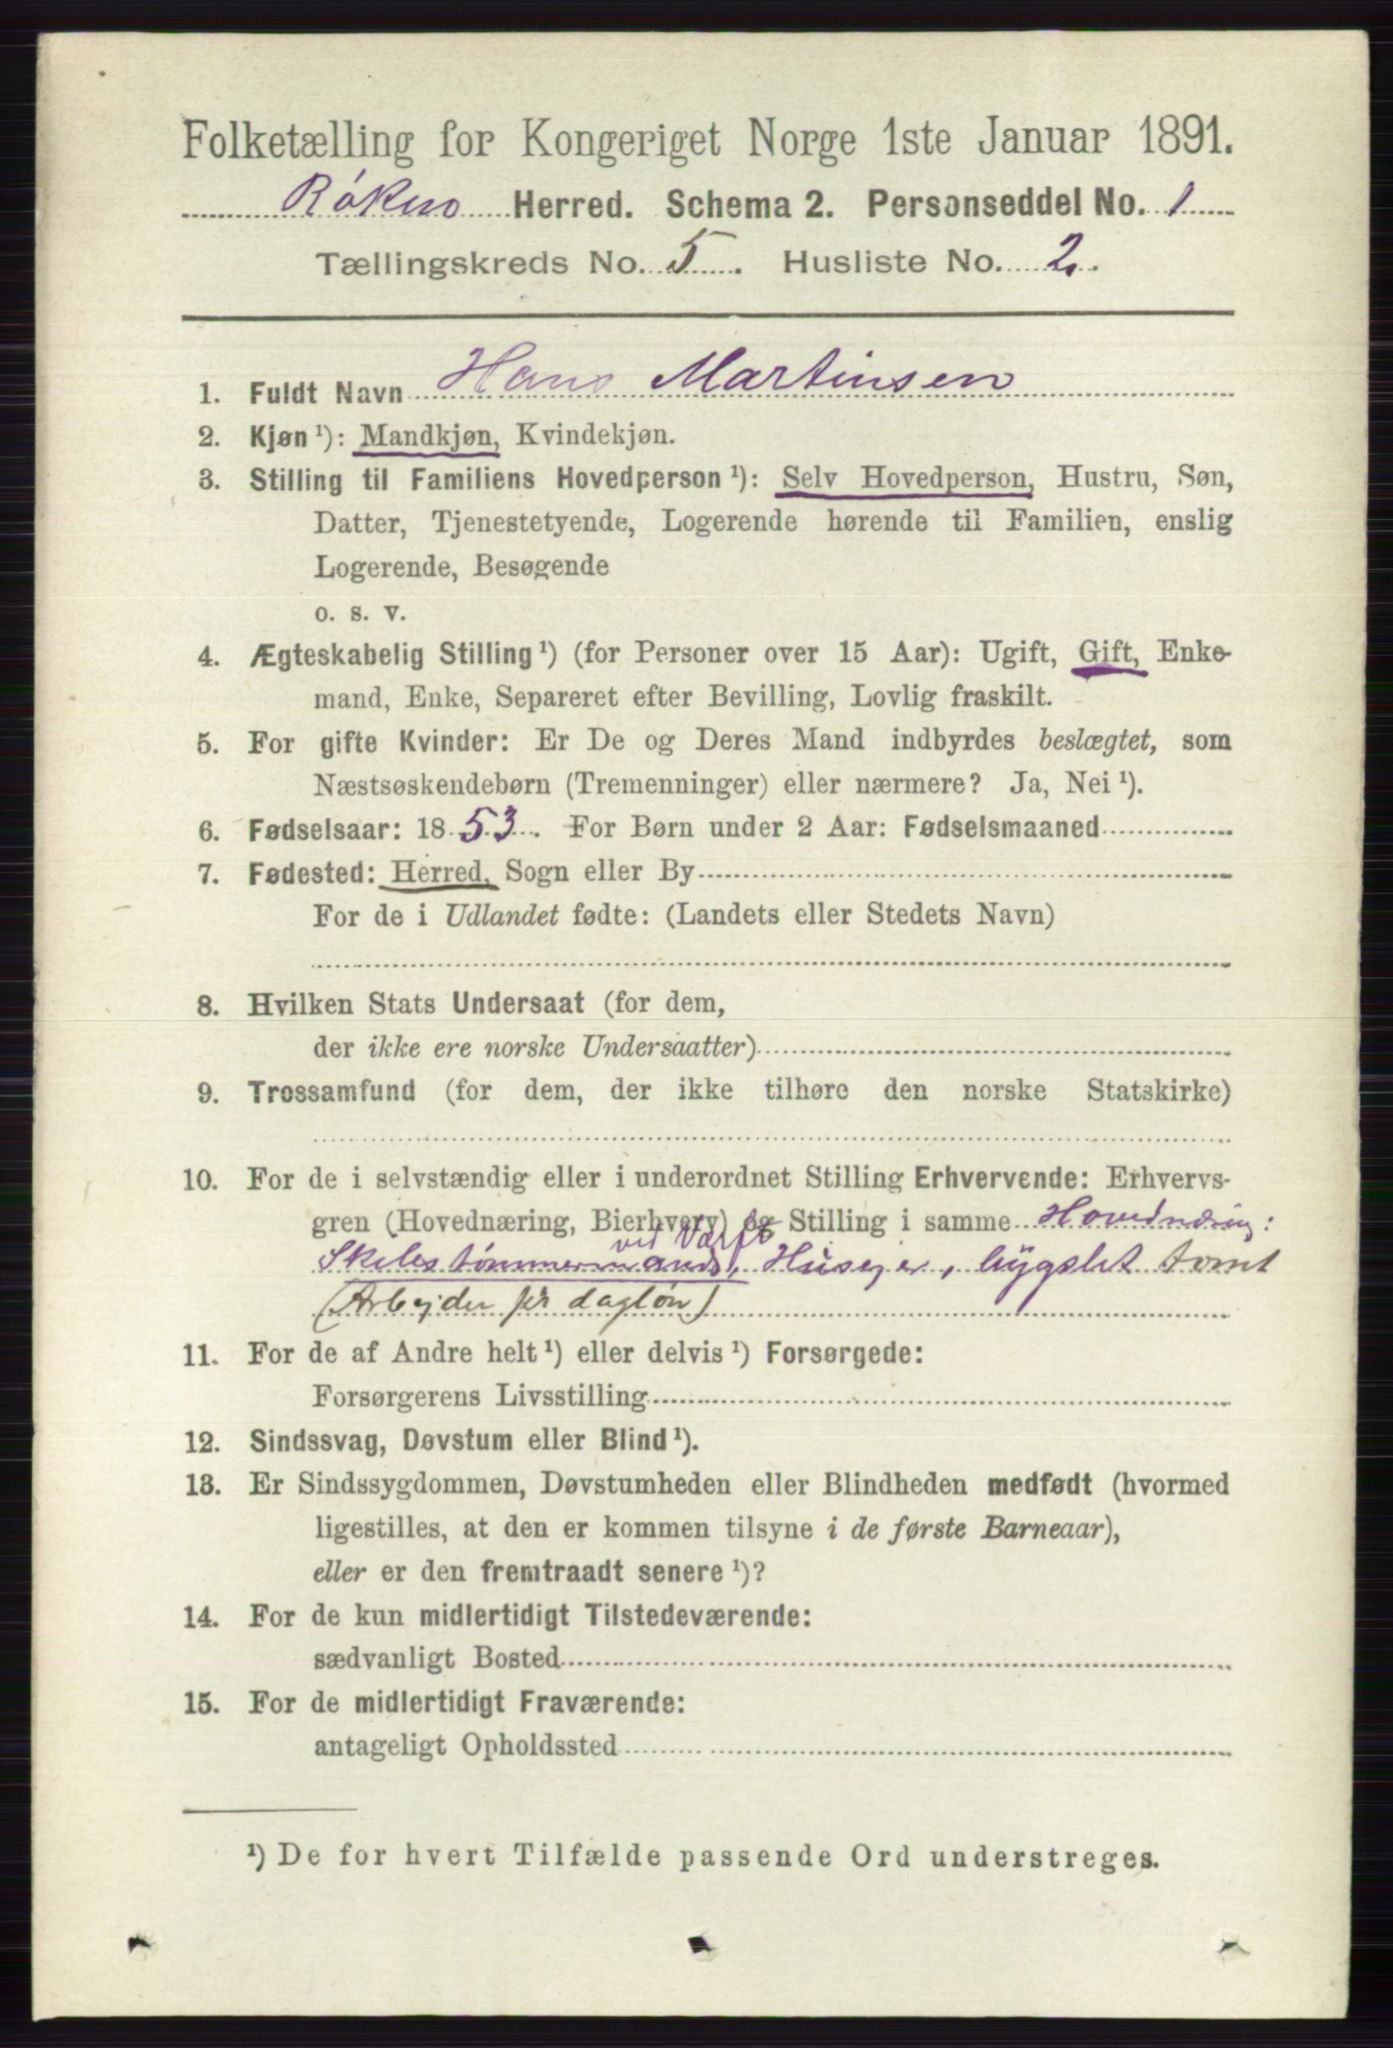 Folketælling for Kongeriget Norge 1ste Januar 1891.
Røken Herred. Schema 2. Personseddel No. 1
Tællingskreds No. 5. Husliste No. 2.
1. Fuldt Navn Hans Martinsen
2. Kjøn ¹): Mandkjøn, Kvindekjøn.
3. Stilling til Familiens Hovedperson ¹): Selv Hovedperson, Hustru, Søn,
Datter, Tjenestetyende, Logerende hørende til Familien, enslig
Logerende, Besøgende
o. s. v.
4. Ægteskabelig Stilling ¹) (for Personer over 15 Aar): Ugift, Gift, Enke-
mand, Enke, Separeret efter Bevilling, Lovlig fraskilt.
5. For gifte Kvinder: Er De og Deres Mand indbyrdes beslægtet, som
Næstsøskendebørn (Tremenninger) eller nærmere? Ja, Nei ¹).
6. Fødselsaar: 1853. For Børn under 2 Aar: Fødselsmaaned
7. Fødested: Herred, Sogn eller By
For de i Udlandet fødte: (Landets eller Stedets Navn)
8. Hvilken Stats Undersaat (for dem,
der ikke ere norske Undersaatter)
9. Trossamfund (for dem, der ikke tilhøre den norske Statskirke)
10. For de i selvstændig eller i underordnet Stilling Erhvervende: Erhvervs-
gren (Hovednæring, Bierhverv) og Stilling i samme Hovednæring:
ved Værft
Skibstømmermand, Husejer, bygslet tomt
(Arbejder pr dagløn)
11. For de af Andre helt ¹) eller delvis ¹) Forsørgede:
Forsørgerens Livsstilling
12. Sindssvag, Døvstum eller Blind ¹).
13. Er Sindssygdommen, Døvstumheden eller Blindheden medfødt (hvormed
ligestilles, at den er kommen tilsyne i de første Barneaar),
eller er den fremtraadt senere ¹)?
14. For de kun midlertidigt Tilstedeværende:
sædvanligt Bosted
15. For de midlertidigt Fraværende:
antageligt Opholdssted
¹) De for hvert Tilfælde passende Ord understreges.